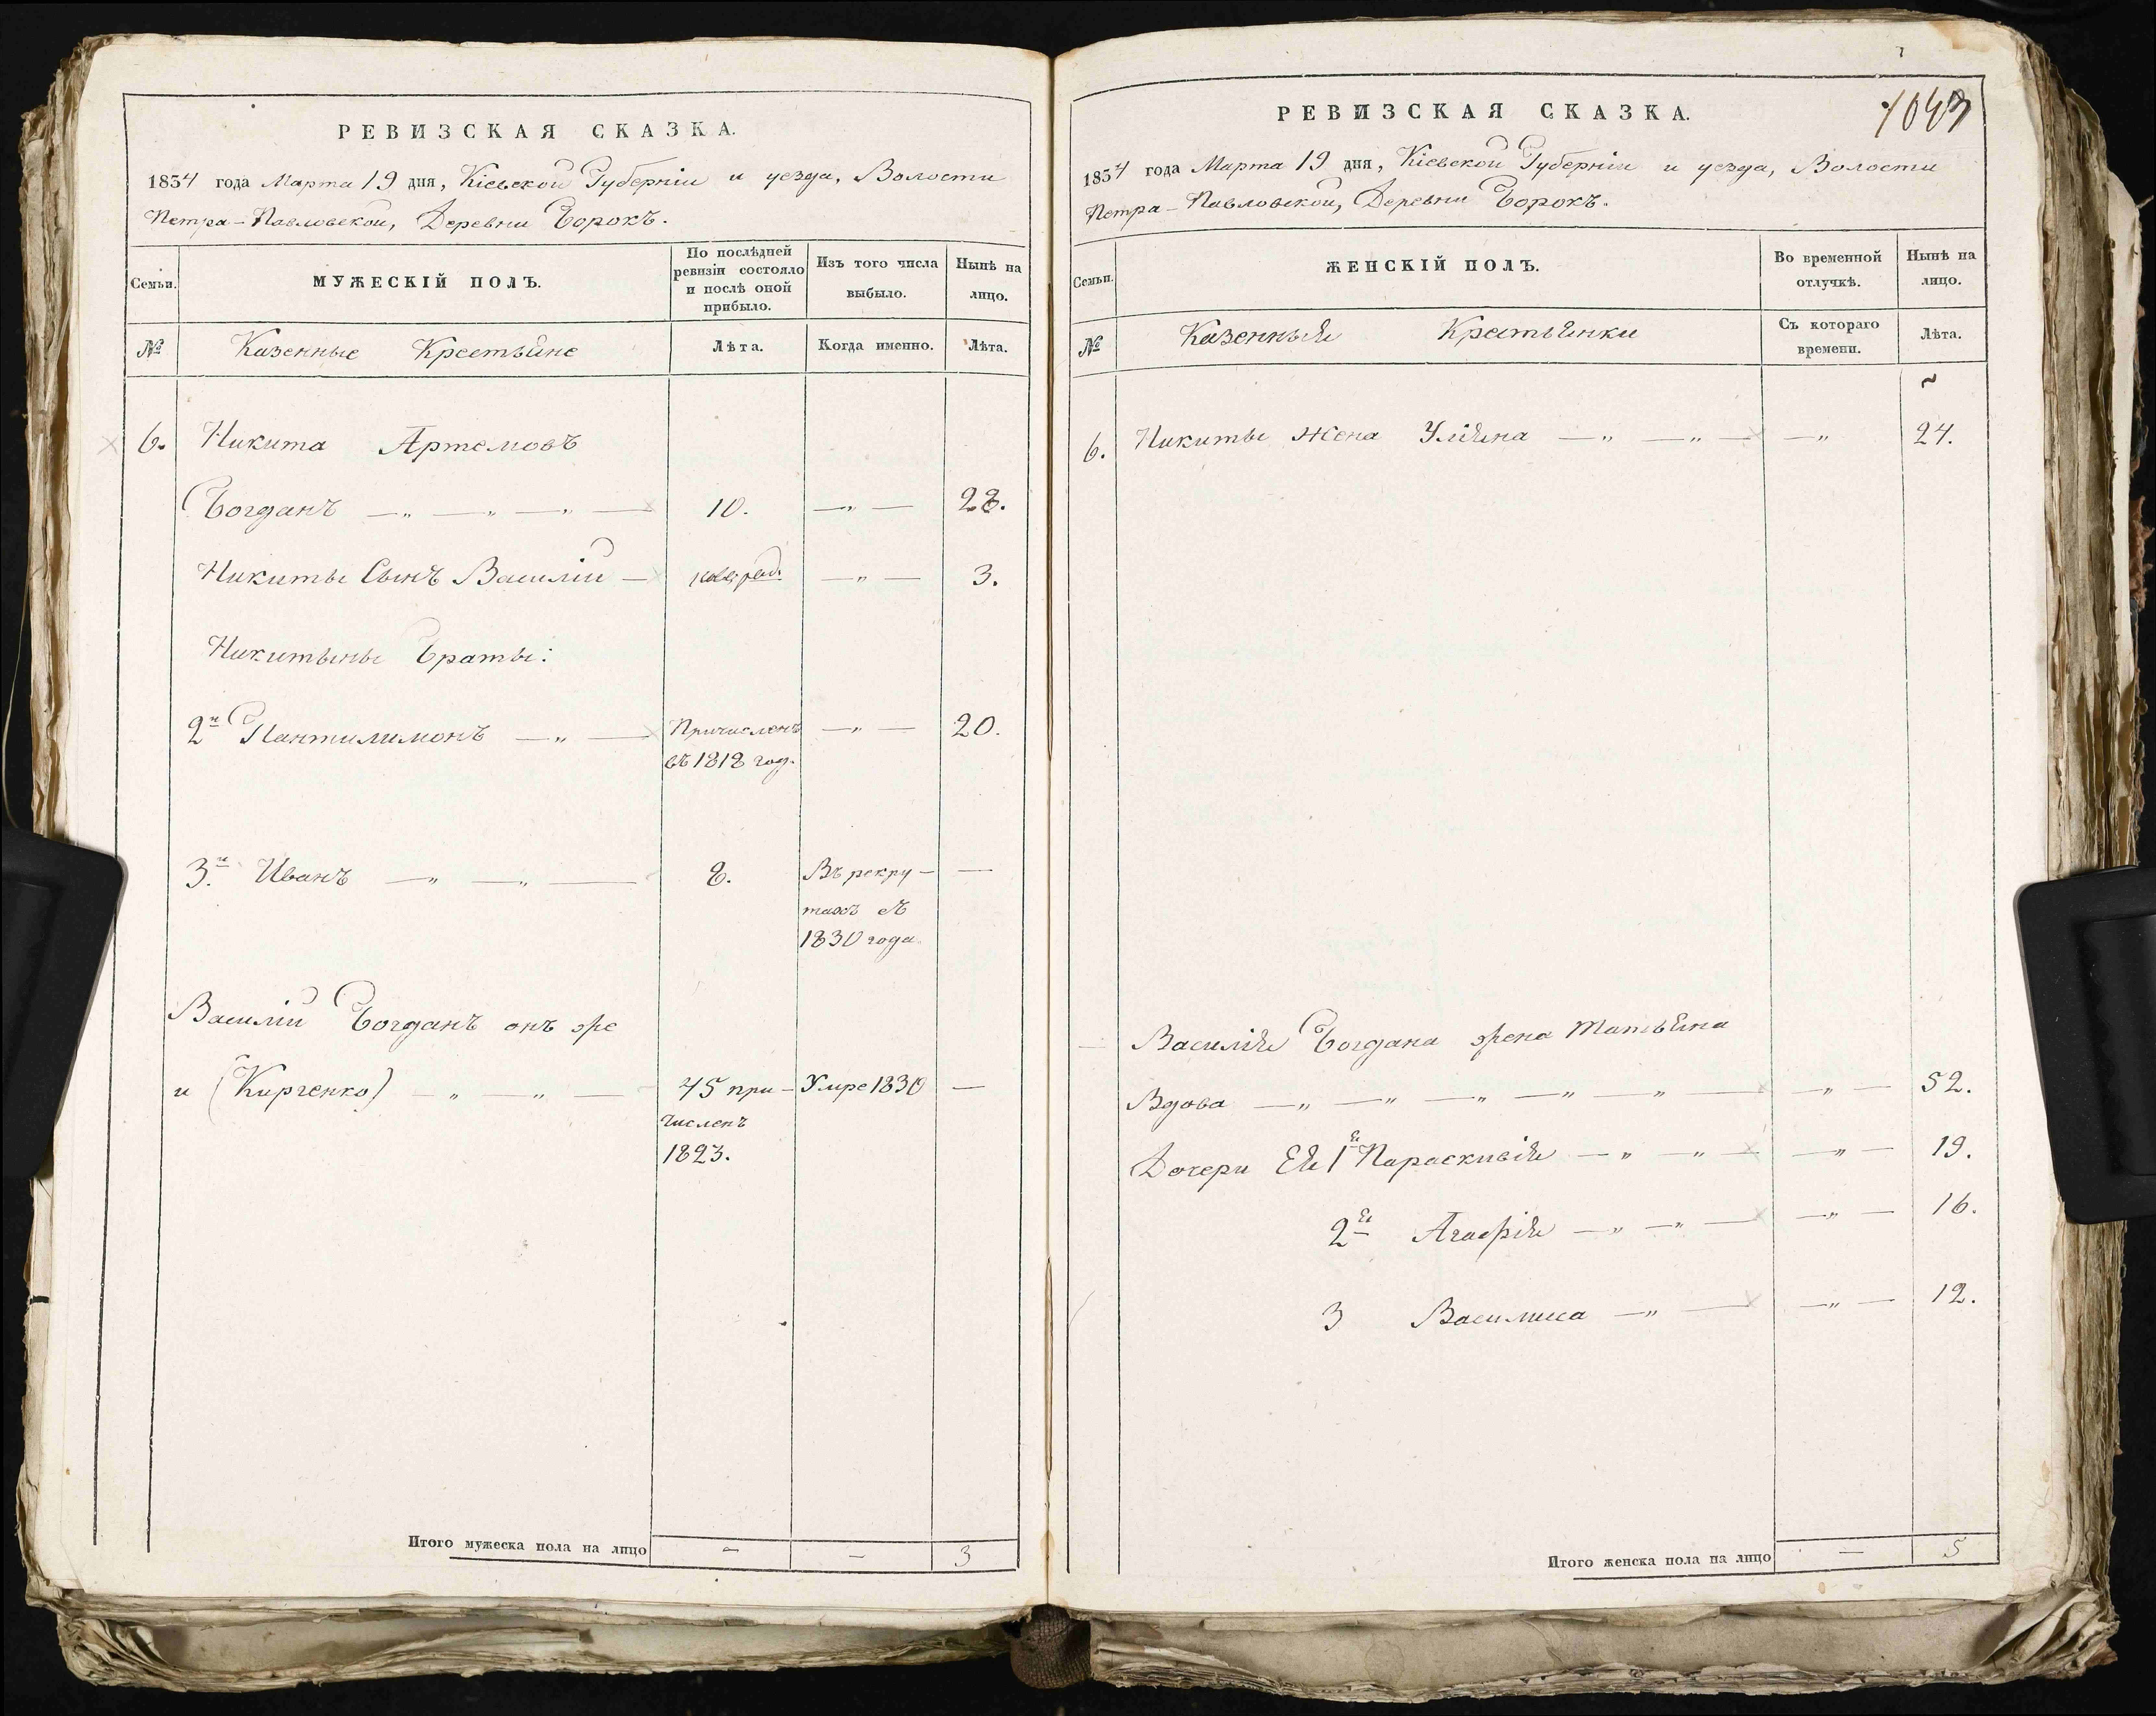 РЕВИЗСКАЯ СКАЗКА.
1834 года Марта 19 дня, Кіевской Губерніи и уезда, Волости
Петра-Павловской, Деревни Борокъ.
Семьи.
МУЖЕСКІЙ ПОЛЪ.
По послѣдней ревизіи состояло и послѣ оной прибыло.
Изъ того числа выбыло.
Нынѣ на лицо.
№
Казенные Крестьяне
Лѣта.
Когда именно.
Лѣта.
6. Никита Артемовъ
Богданъ — „ — „ — „ — 10. — „ — 28.
Никиты Сынъ Василій — — „ — 3.
Никитыны Браты:
2й Пантилимонъ — „ — Причисленъ — „ — 20.
въ 1818 год.
3й Иванъ — „ — „ — 8. Въ рекру- —
тахъ съ
1830 года.
Василій Богданъ онъ же
и (Кирченко) — „ — „ — 45 при- Умре 1830 —
численъ
1823.
Итого мужеска пола на лицо — — 3
РЕВИЗСКАЯ СКАЗКА.
1043
1834 года Марта 19 дня, Кіевской Губерніи и уезда, Волости
Петра-Павловской, Деревни Борокъ.
Семьи.
ЖЕНСКІЙ ПОЛЪ.
Во временной отлучкѣ.
Нынѣ на лицо.
№
Казенныя Крестьянки
Съ котораго времени.
Лѣта.
6. Никиты жена Уліяна — „ — „ — — „ 24.
Василія Богдана жена Татьяна
Вдова — „ — „ — „ — „ — „ — — „ — 52.
Дочери Ея 1я Параскивія — „ — „ — — „ — 19.
2я Агафія — „ — „ — — „ — 16.
3 Василиса — „ — — „ — 12.
Итого женска пола на лицо — 5